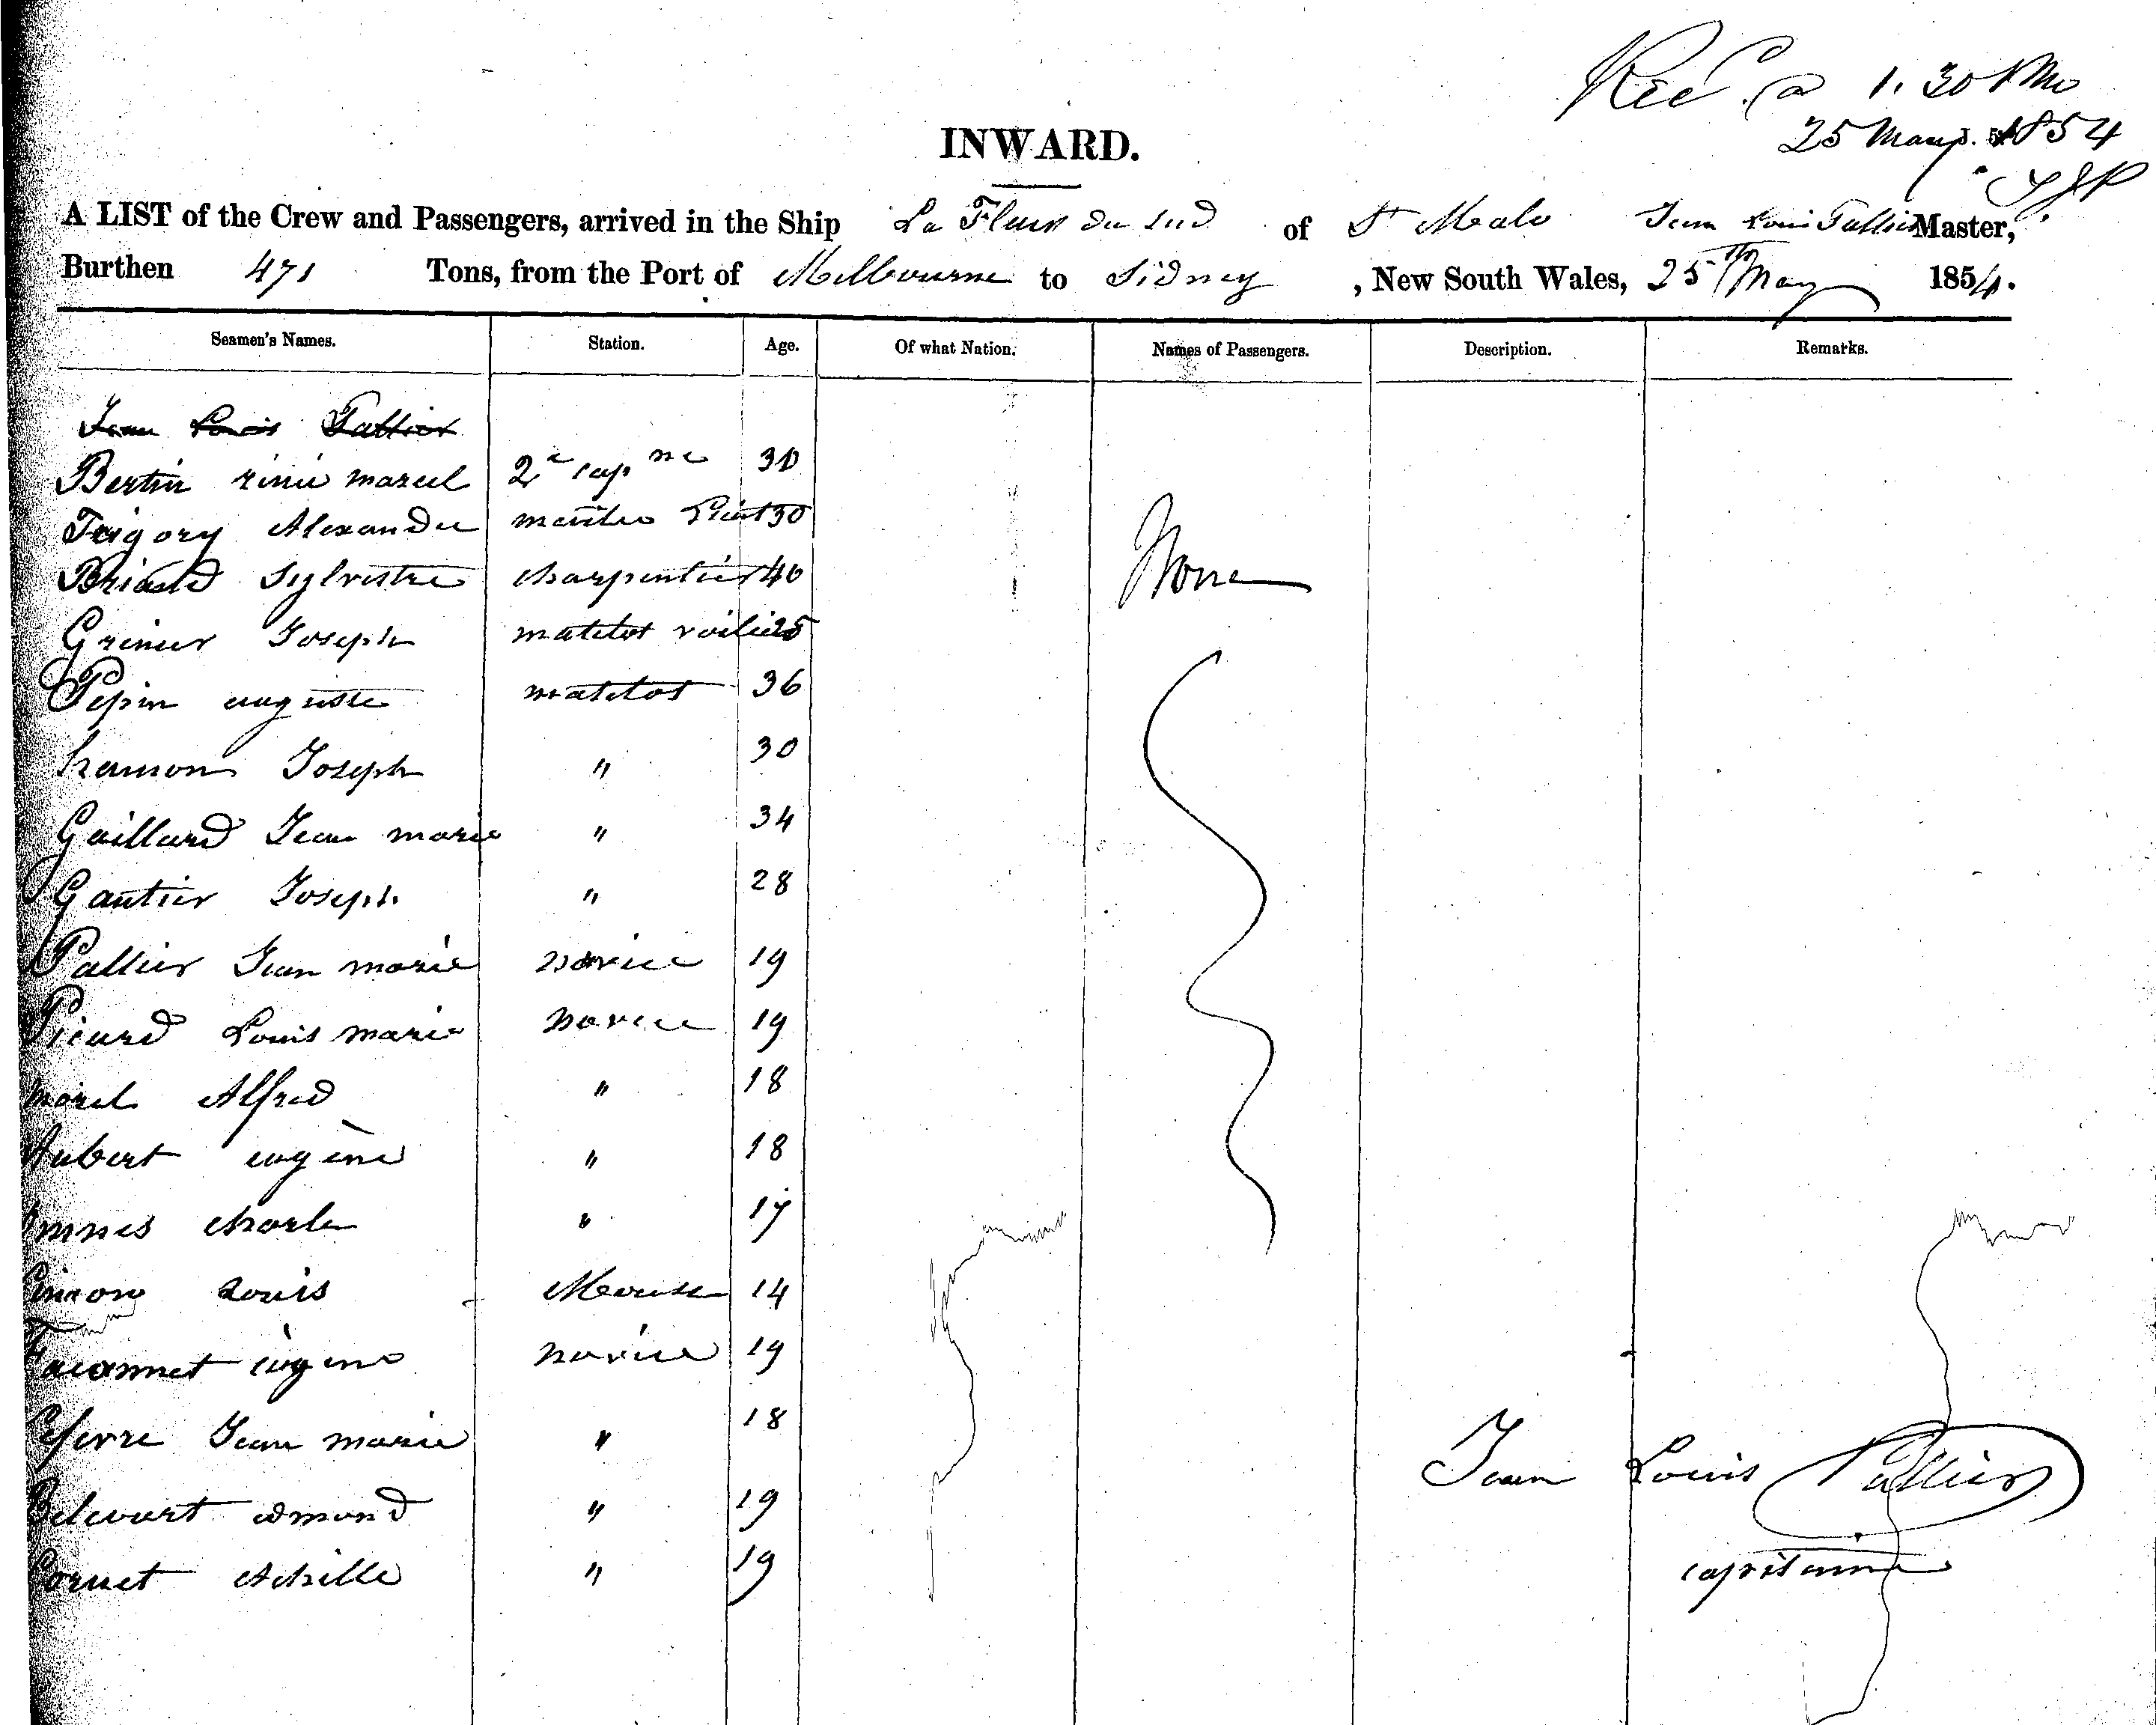 Rec @ 1.30 PM
25 May 1854
INWARD.
A LIST of the Crew and Passengers, arrived in the Ship La Fleur du Sud of St Malo Jean Louis Pallier Master,
Burthen 471 Tons, from the Port of Melbourne to Sidney, New South Wales, 25th May 1854.
Seamen's Names. Station. Age. Of what Nation. Names of Passengers. Description. Remarks.
Jean Louis Pallier
Bertin marcel 2e cap ne 30
Alexandre 30
Briand Sylvestre charpentier 40
Joseph matelot voilier 25
Pepin auguste matelot 36
None
hamon Joseph " 30
Gaillard Jean marie " 34
Gautier Joseph " 28
Pallier Jean marie novice 19
Picard Louis marie novice 19
morel Alfred " 18
Aubert eugène " 18
charles " 17
Louis Mousse 14
eugene novice 19
Jean marie " 18
edmond " 19
Cornet Achille " 19
Jean Louis Pallier
capitaine